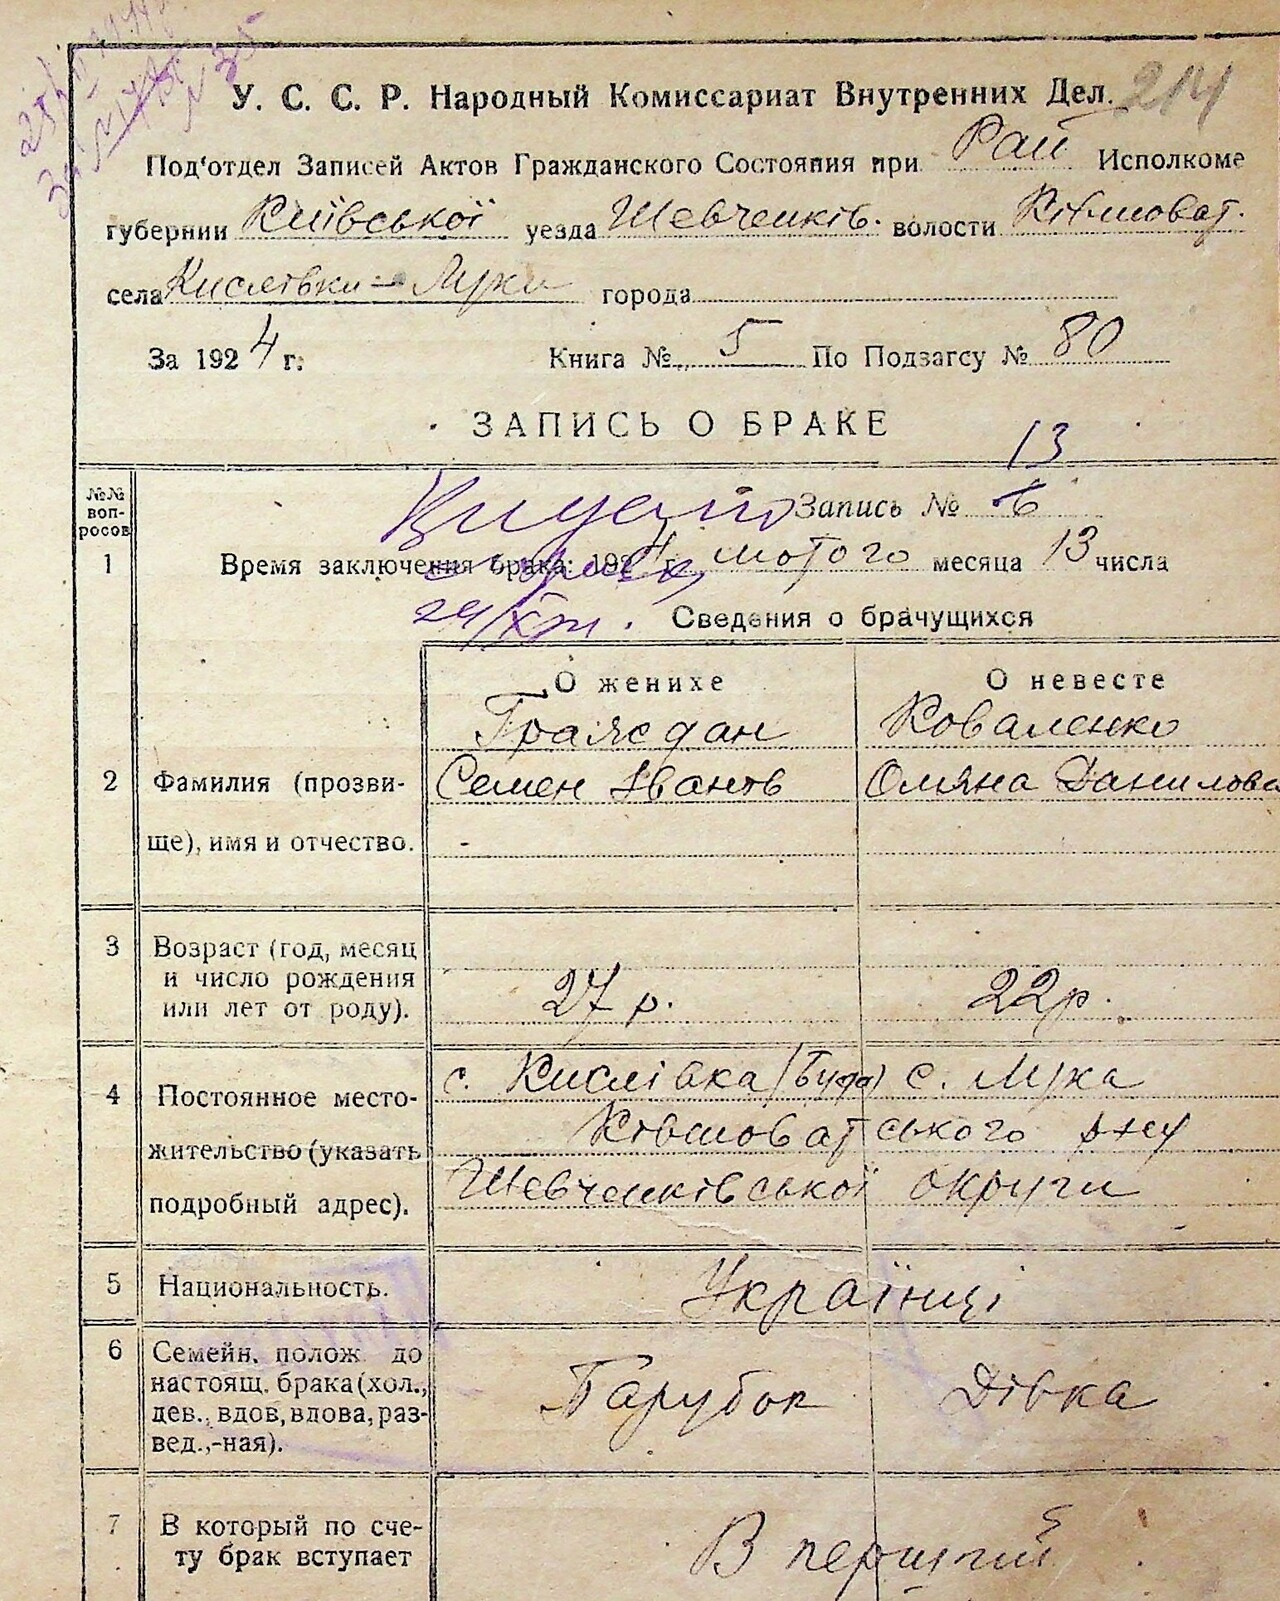 214
У. С. С. Р. Народный Комиссариат Внутренних Дел.
Под'отдел Записей Актов Гражданского Состояния при Рай Исполкоме
губернии Київської уезда Шевченків. волости Ківшоват.
села Кислівки - Луки города
За 1924 г. Книга № 5 По Подзагсу № 80
ЗАПИСЬ О БРАКЕ
13
№№ вопросов
Запись № 6
1 Время заключения брака: 1924 г. лютого месяца 13 числа
Сведения о брачущихся
О женихе О невесте
Граждан Коваленко
2 Фамилия (прозви- Семен Іванов Омяна Данилова
ще), имя и отчество. -
3 Возраст (год, месяц
и число рождения 27 р. 22 р.
или лет от роду).
с. Кислівка (Буда) с. Лука
4 Постоянное место- Ківшоватського р-ну
жительство (указать Шевченківської округи
подробный адрес).
5 Национальность. Українці
6 Семейн. полож до
настоящ. брака (хол., Парубок Дівка
дев., вдов, вдова, раз-
вед.,-ная).
7 В который по сче- В перший
ту брак вступает